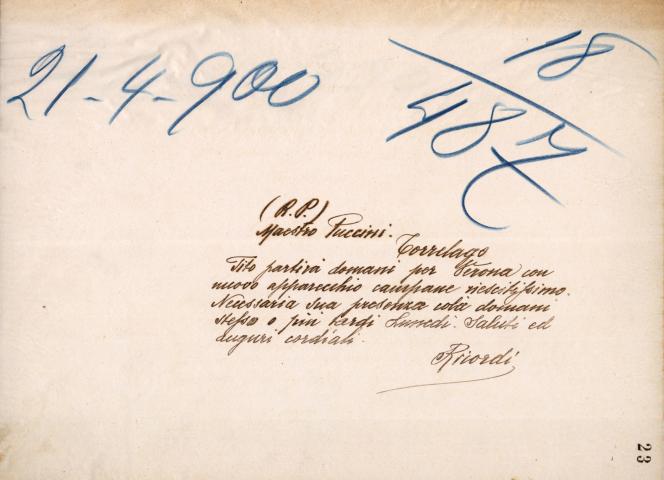 21-4-900
18
487
(R.P.)
Maestro Puccini.
Torrelago
Tito partirà domani per Verona con
nuovo apparecchio campane riescitissimo.
Necessaria sua presenza colà domani
stesso o più tardi Lunedì. Saluti ed
auguri cordiali.
Ricordi
23